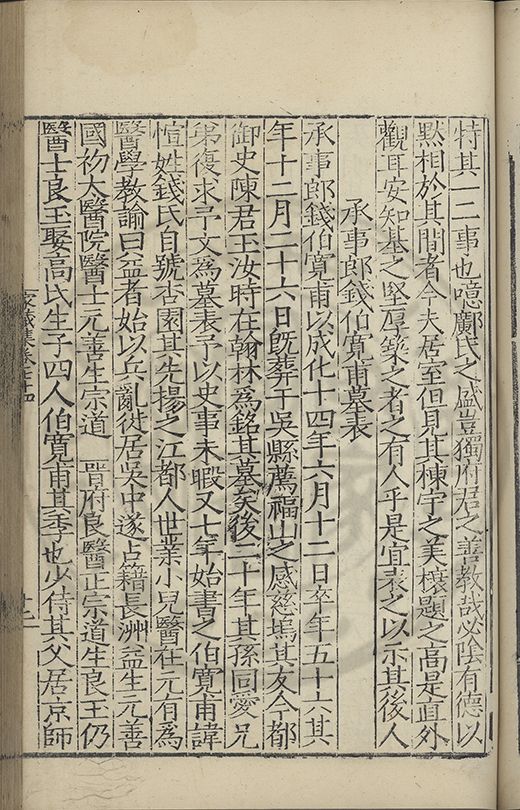 特其一二事也噫鄺氏之盛豈獨府君之善教哉必陰有德以
黙相於其間者今夫居室但見其棟宇之美榱題之高是直外
觀耳安知基之堅厚築之者之有人乎是宜表之以示其後人
承事郎錢伯寬甫墓表
承事郎錢伯寬甫以成化十四年六月十二日卒年五十六其
年十二月二十六日旣葬于吳縣薦福山之感慈塢其友今都
御史陳君玉汝時在翰林爲銘其墓矣後二十年其孫同愛兄
弟復求予文爲墓表予以史事未暇又七年始書之伯寬甫諱
愷姓錢氏自號杏園其先揚之江都人世業小兒醫在元有爲
醫學教諭曰益者始以兵亂徙居吳中遂占籍長洲益生元善
國初太醫院醫士元善生宗道 晋府良醫正宗道生良玉仍
醫士良玉娶高氏生子四人伯寬甫其季也少侍其父居京師